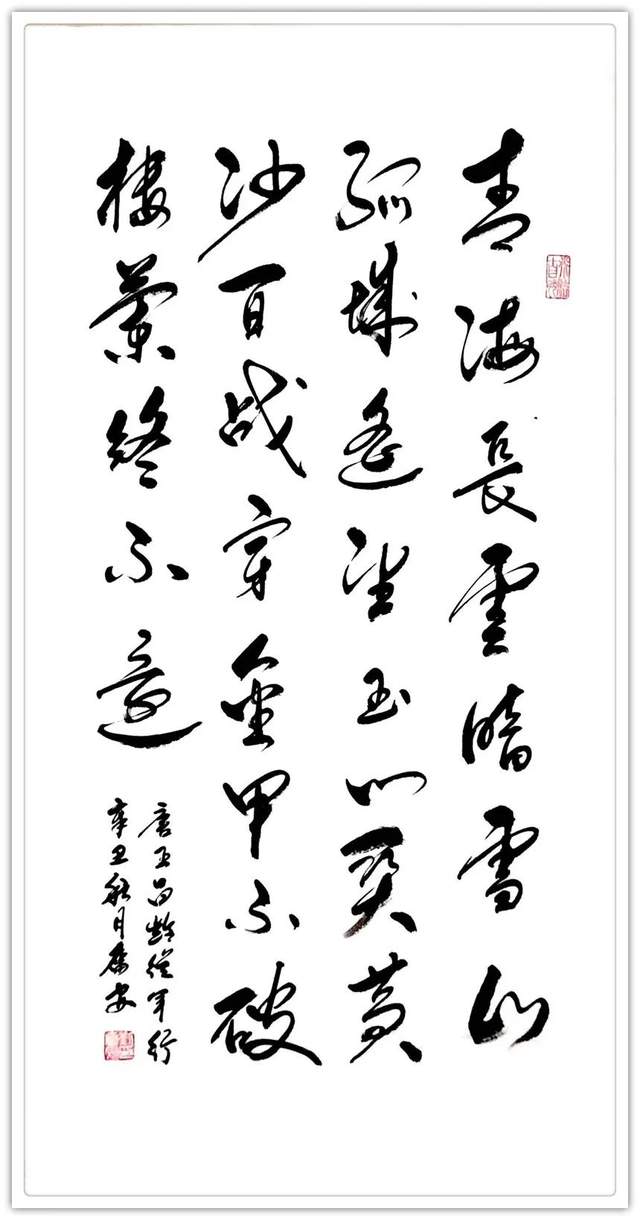 青海長雲暗雪山
孤城遙望玉门關黄
沙百战穿金甲不破
樓蘭終不還
唐王昌齡從军行
辛丑秋月